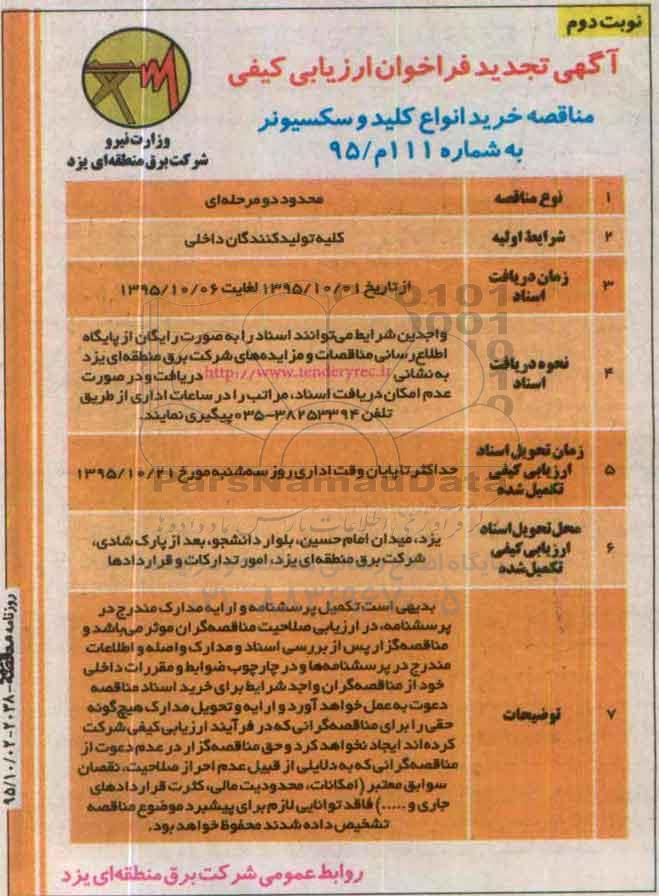 نوبت دوم
آگهی تجدید فراخوان ارزیابی کیفی
مناقصه خرید انواع کلید و سکسیونر
به شماره ۱۱۱م/۹۵
وزارت نیرو
شرکت برق منطقه‌ای یزد
۱ نوع مناقصه محدود دو مرحله‌ای
۲ شرایط اولیه کلیه تولیدکنندگان داخلی
۳ زمان دریافت اسناد از تاریخ ۱۳۹۵/۱۰/۰۱ لغایت ۱۳۹۵/۱۰/۰۶
۴ نحوه دریافت اسناد
واجدین شرایط می‌توانند اسناد را به صورت رایگان از پایگاه
اطلاع‌رسانی مناقصات و مزایده‌های شرکت برق منطقه‌ای یزد
به نشانی http://www.tenderyrec.ir دریافت و در صورت
عدم امکان دریافت اسناد، مراتب را در ساعات اداری از طریق
تلفن ۳۸۲۵۳۳۹۴-۰۳۵ پیگیری نمایند.
۵ زمان تحویل اسناد ارزیابی کیفی تکمیل شده
حداکثر تا پایان وقت اداری روز سه‌شنبه مورخ ۱۳۹۵/۱۰/۲۱
۶ محل تحویل اسناد ارزیابی کیفی تکمیل شده
یزد، میدان امام حسین، بلوار دانشجو، بعد از پارک شادی،
شرکت برق منطقه‌ای یزد، امور تدارکات و قراردادها
۷ توضیحات
بدیهی است تکمیل پرسشنامه و ارایه مدارک مندرج در
پرسشنامه، در ارزیابی صلاحیت مناقصه‌گران موثر می‌باشد و
مناقصه‌گزار پس از بررسی اسناد و مدارک واصله و اطلاعات
مندرج در پرسشنامه‌ها و در چارچوب ضوابط و مقررات داخلی
خود از مناقصه‌گران واجد شرایط برای خرید اسناد مناقصه
دعوت به عمل خواهد آورد و ارایه و تحویل مدارک هیچ‌گونه
حقی را برای مناقصه‌گرانی که در فرآیند ارزیابی کیفی شرکت
کرده‌اند ایجاد نخواهد کرد و حق مناقصه‌گزار در عدم دعوت از
مناقصه‌گرانی که به دلایلی از قبیل عدم احراز صلاحیت، نقصان
سوابق معتبر (امکانات، محدودیت مالی، کثرت قراردادهای
جاری و .....) فاقد توانایی لازم برای پیشبرد موضوع مناقصه
تشخیص داده شدند محفوظ خواهد بود.
روابط عمومی شرکت برق منطقه‌ای یزد
ParsNamadData
روزنامه مناقصه - ۲۰۲۸ - ۹۵/۱۰/۰۲